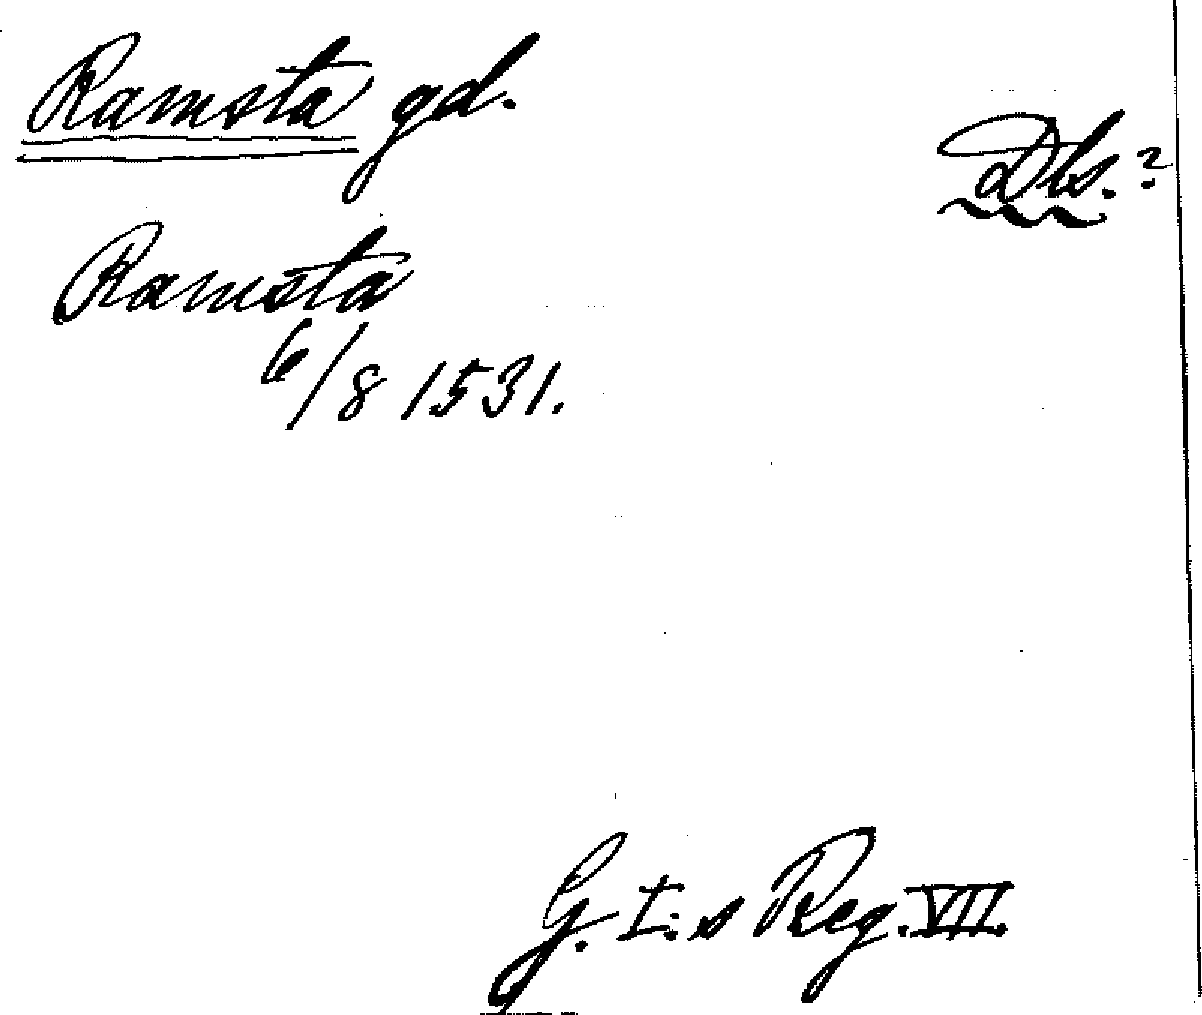 Ramsta gd.
Dls.?
Ramsta
6/8 1531.
G. I:s Reg. VII.